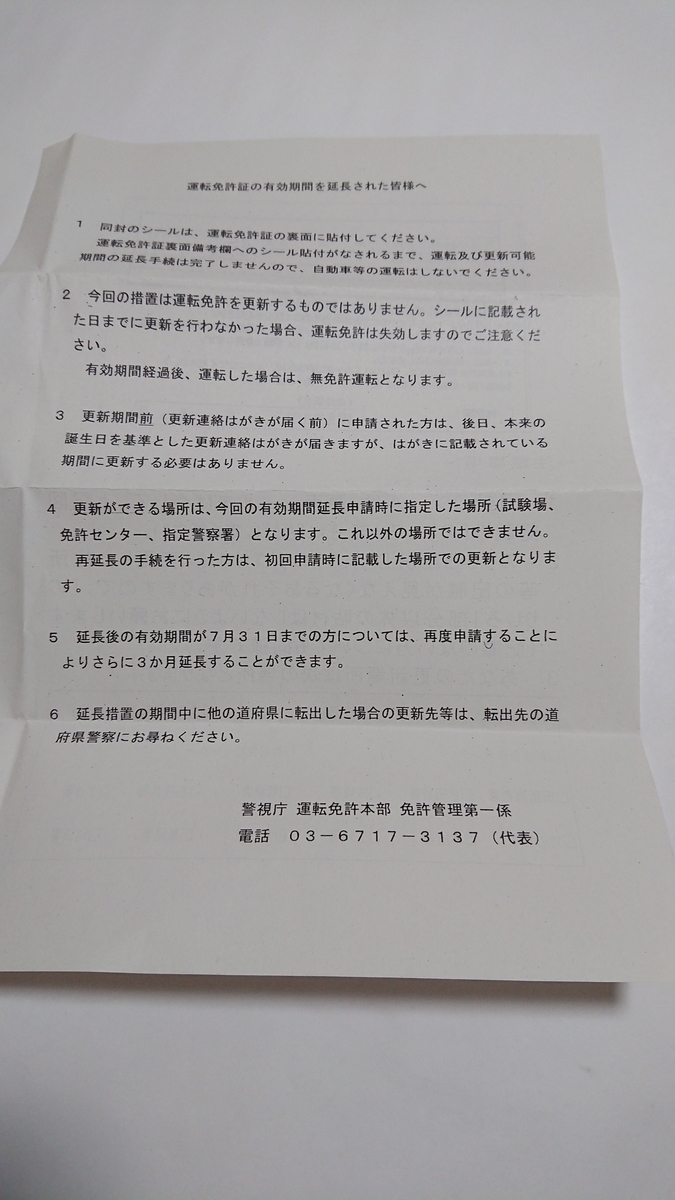 運転免許証の有効期間を延長された皆様へ
１　同封のシールは、運転免許証の裏面に貼付してください。
運転免許証裏面備考欄へのシール貼付がなされるまで、運転及び更新可能
期間の延長手続は完了しませんので、自動車等の運転はしないでください。
２　今回の措置は運転免許を更新するものではありません。シールに記載され
た日までに更新を行わなかった場合、運転免許は失効しますのでご注意くだ
さい。
有効期間経過後、運転した場合は、無免許運転となります。
３　更新期間前（更新連絡はがきが届く前）に申請された方は、後日、本来の
誕生日を基準とした更新連絡はがきが届きますが、はがきに記載されている
期間に更新する必要はありません。
４　更新ができる場所は、今回の有効期間延長申請時に指定した場所（試験場、
免許センター、指定警察署）となります。これ以外の場所ではできません。
再延長の手続を行った方は、初回申請時に記載した場所での更新となりま
す。
５　延長後の有効期間が７月３１日までの方については、再度申請することに
よりさらに３か月延長することができます。
６　延長措置の期間中に他の道府県に転出した場合の更新先等は、転出先の道
府県警察にお尋ねください。
警視庁 運転免許本部 免許管理第一係
電話　０３－６７１７－３１３７（代表）